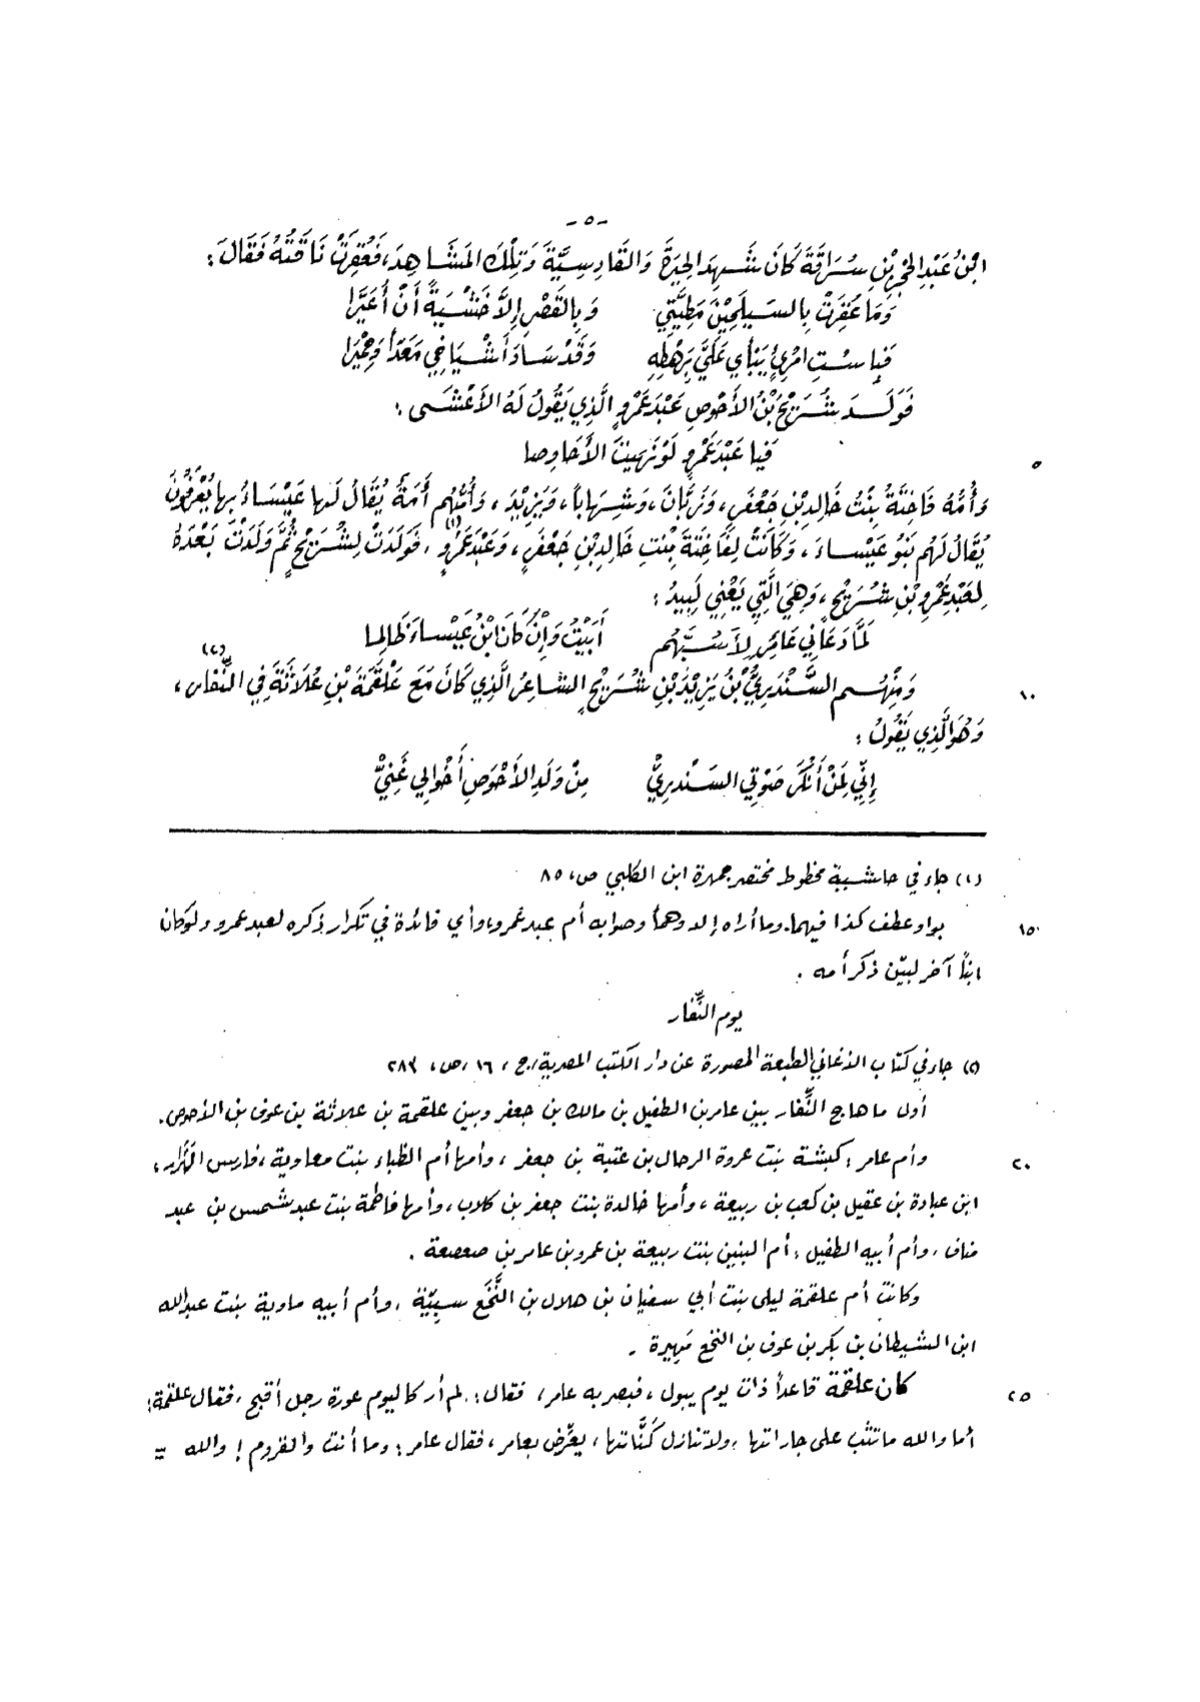 -٥-
ابْنُ عَبْدِ الحِجْرِ بْنِ سُرَاقَةَ كَانَ شَهِدَ الحِيرَةَ وَالقَادِسِيَّةَ وَتِلْكَ المَشَاهِدَ، فَعُقِرَتْ نَاقَتُهُ فَقَالَ:
وَمَا عَقَرَتْ بِالسَيْلَحِيْنَ مَطِيَّتِي وَبِالقَصْرِ إِلاَّ خَشْيَةً أَنْ أُعَيَّرا
فَبِاسْتِ امْرِئٍ يَبْأَي عَلَيَّ بِرَهْطِهِ وَقَدْ سَادَ أَشْيَاخِي مَعَدّاً وَحِمْيَرا
فَوَلَدَ شُرَيْحُ بْنُ الأَحْوَصِ عَبْدَ عَمْرٍو الَّذِي يَقُولُ لَهُ الأَعْشَى:
فَيا عَبْدَ عَمْرٍو لَوْ نَهَيْتَ الأَحَاوِصا
٥
وَأُمُّهُ فَاخِتَةُ بِنْتُ خَالِدِ بْنِ جَعْفَرٍ، وَزَبَّانَ، وَشِهَاباً، وَيَزِيْدَ، وَأُمُّهُم أَمَةٌ يُقَالُ لَها عَيْسَاءُ بِها يُعْرَفُونَ
يُقَالُ لَهُم بَنُو عَيْسَاءَ، وَكَانَتْ لِفَاخِتَةَ بِنْتِ خَالِدِ بْنِ جَعْفَرٍ، وَعَبْدَ عَمْرٍو(١)، فَوَلَدَتْ لِشُرَيْحٍ ثُمَّ وَلَدَتْ بَعْدَهُ
لِعَبْدِ عَمْرِو بْنِ شُرَيْحٍ، وَهِيَ الَّتِي يَعْنِي لَبِيدُ:
لَمَّا دَعَانِي عَامِرٌ لِأَسُبَّهُم أَبَيْتُ وَإِنْ كَانَ ابْنُ عَيْسَاءَ ظَالِما
وَمِنْهُم السَّنْدَرِيُّ بْنُ يَزِيْدَ بْنِ شُرَيْحٍ الشاعِرُ الَّذِي كَانَ مَعَ عَلْقَمَةَ بْنِ عُلَاثَةَ فِي النِّفَارِ(٢)،
١٠
وَهُوَ الَّذِي يَقُولُ:
إِنِّي لِمَنْ أَنْكَرَ صَوْتِي السَنْدَرِيُّ مِنْ وَلَدِ الأَحْوَصِ أَخْوَالِي غَنِيُّ
(١) جاء في حاشية مخطوط مختصر جمهرة ابن الكلبي ص، ٨٥
بواو عطف كذا فيهما. وما أراه إلا وهماً وصوابه أم عبد عمرو، وأي فائدة في تكرار ذكره لعبد عمرو ولو كان
١٥
ابناً آخر لبيّن ذكر أمه .
يوم النِّفار
(٢) جاء في كتاب الأغاني الطبعة المصورة عن دار الكتب المصرية/ج، ١٦ ،ص، ٢٨٣
أول ما هاج النِّفار بين عامر بن الطفيل بن مالك بن جعفر وبين علقمة بن علاثة بن عوف بن الأحوص.
وأم عامر : كبشة بنت عروة الرحال بن عتبة بن جعفر ، وأمها أم الظباء بنت معاوية ،فارس الهَّرار،
٢٠
ابن عبادة بن عقيل بن كعب بن ربيعة ، وأمها خالدة بنت جعفر بن كلاب، وأمها فاطمة بنت عبد شمس بن عبد
مناف ، وأم أبيه الطفيل : أم البنين بنت ربيعة بن عمرو بن عامر بن صعصعة .
وكانت أم علقمة ليلى بنت أبي سفيان بن هلال بن النَّخَع سبيّة ، وأم أبيه ماوية بنت عبدالله
ابن الشيطان بن بكر بن عوف بن النخع مَهِيرة .
كان علقمة قاعداً ذات يوم يبول ، فبصر به عامر، فقال: لم أر كاليوم عورة رجل أقبح ، فقال علقمة:
٢٥
أما والله ما تثب على جاراتها ، ولا تنازل كَنَّاتها ، يعرِّض بعامر ، فقال عامر : وما أنت والقروم ! والله =